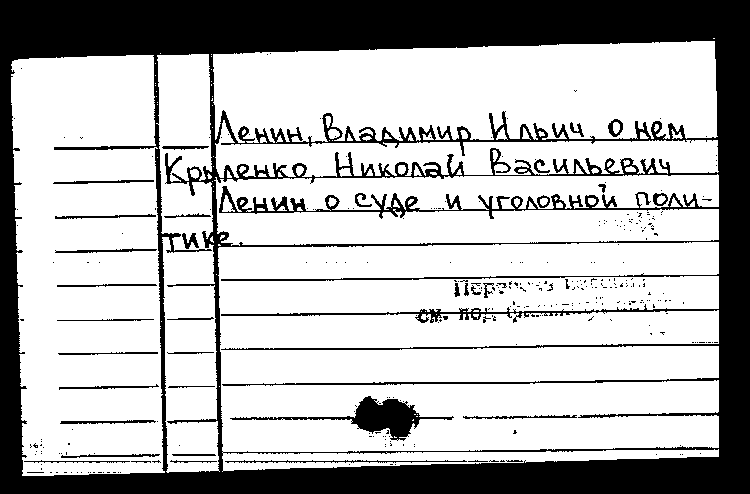 Ленин, Владимир Ильич, о нем
Крыленко, Николай Васильевич
Ленин о суде и уголовной поли-
тике.
см. под